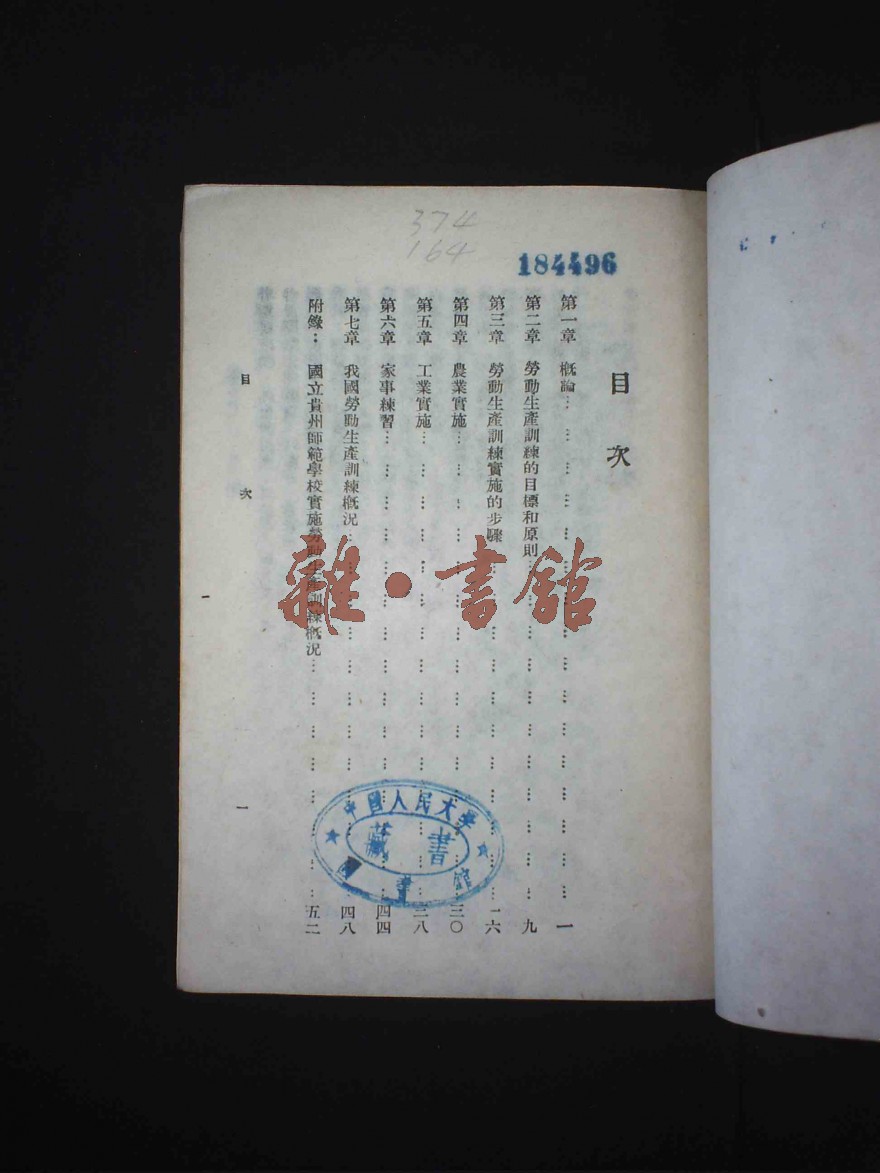 374
164
184496
目次
第一章 概論………………………………一
第二章 勞動生產訓練的目標和原則………………………………九
第三章 勞動生產訓練實施的步驟………………………………一六
第四章 農業實施………………………………三〇
第五章 工業實施………………………………三八
第六章 家事練習………………………………四四
第七章 我國勞動生產訓練概況………………………………四八
附錄：國立貴州師範學校實施勞動生產訓練概況………………………………五二
目次
一
雜·書館
中國人民大學
藏書
圖書館